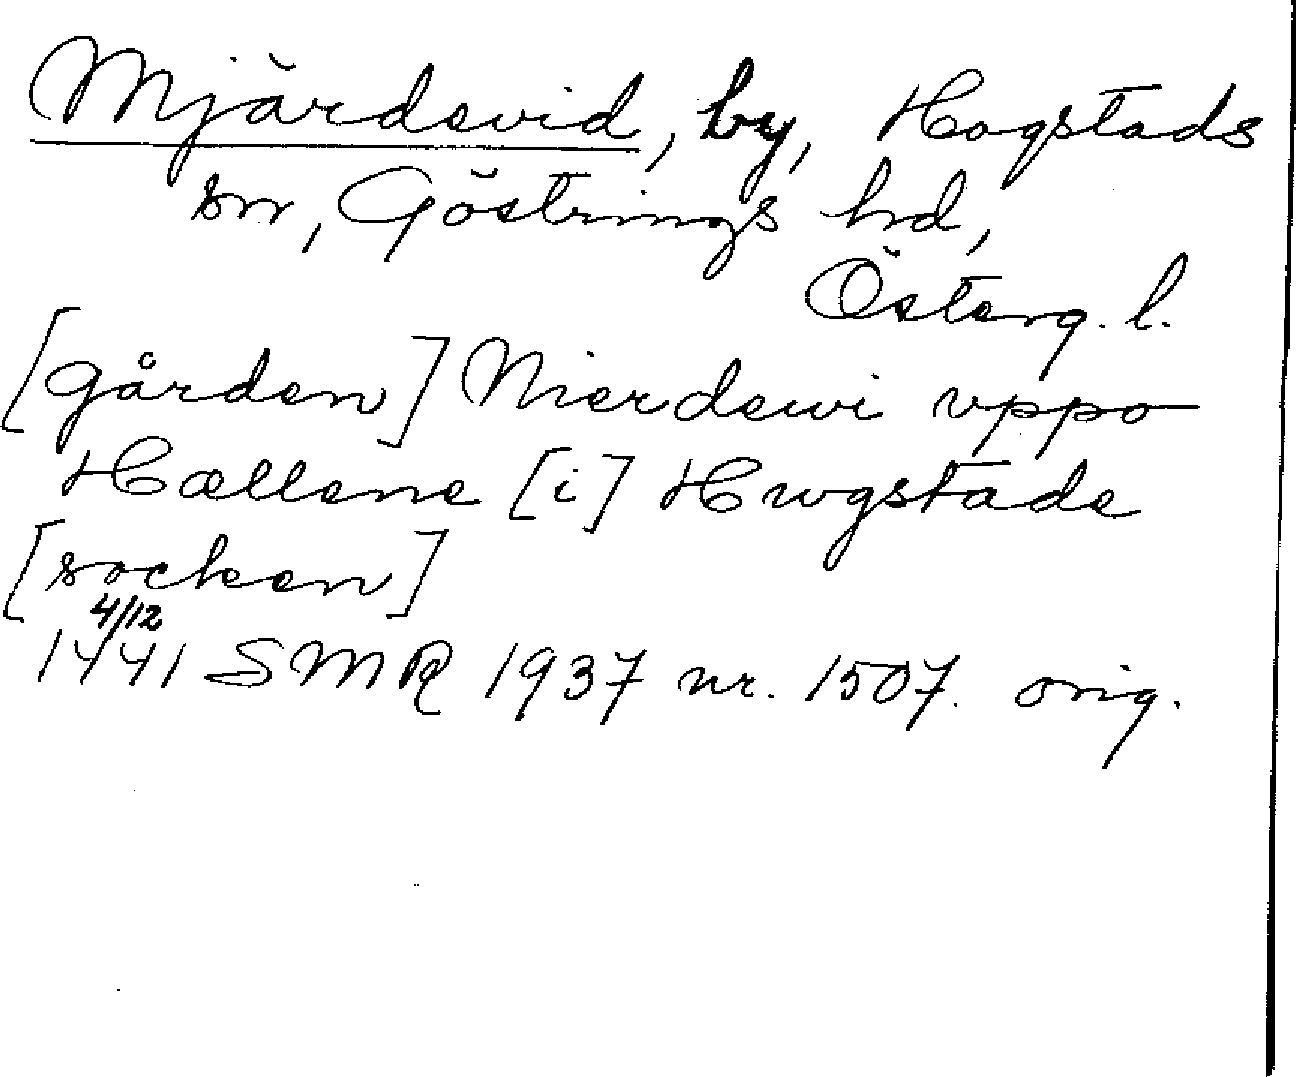 Mjärdevid, by, Hogstads
sn, Göstrings hd,
Österg. l.
[gården] Mierdewi vppo
Hællene [i] Hwgstade
[socken]
4/12
1441 SMR 1937 nr. 1507. orig.